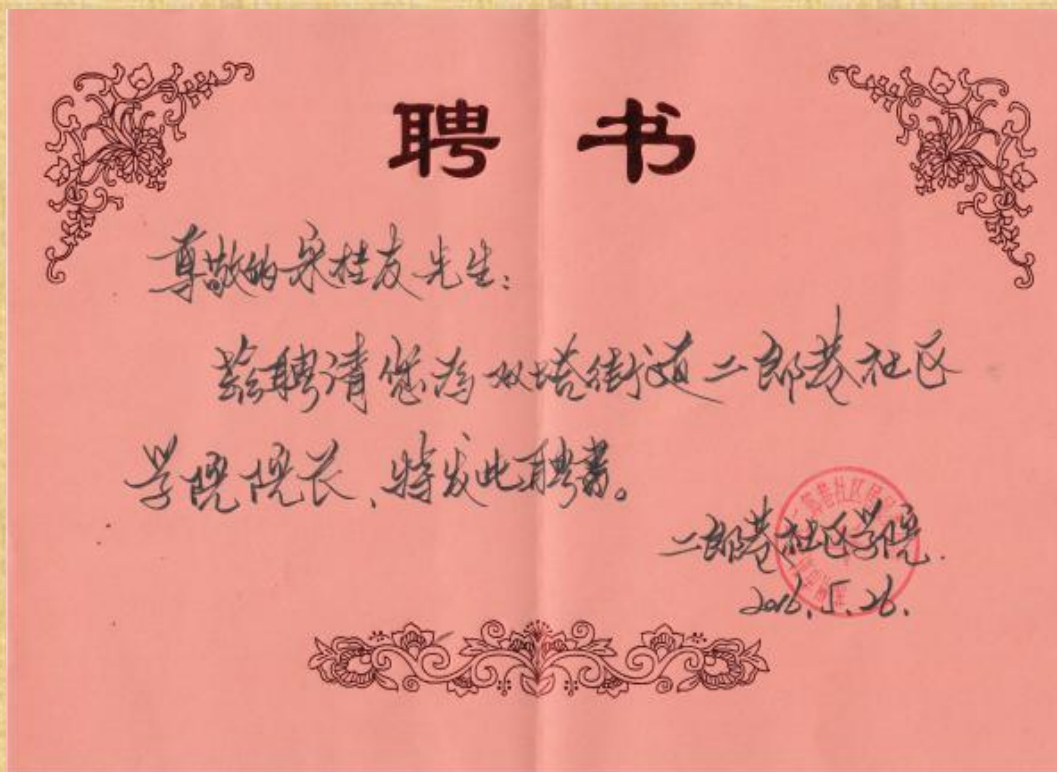 聘 书
尊敬的宋桂友先生：
兹聘请您为双塔街道二郎巷社区
学院院长、特发此聘书。
二郎巷社区学院.
2016.5.26.